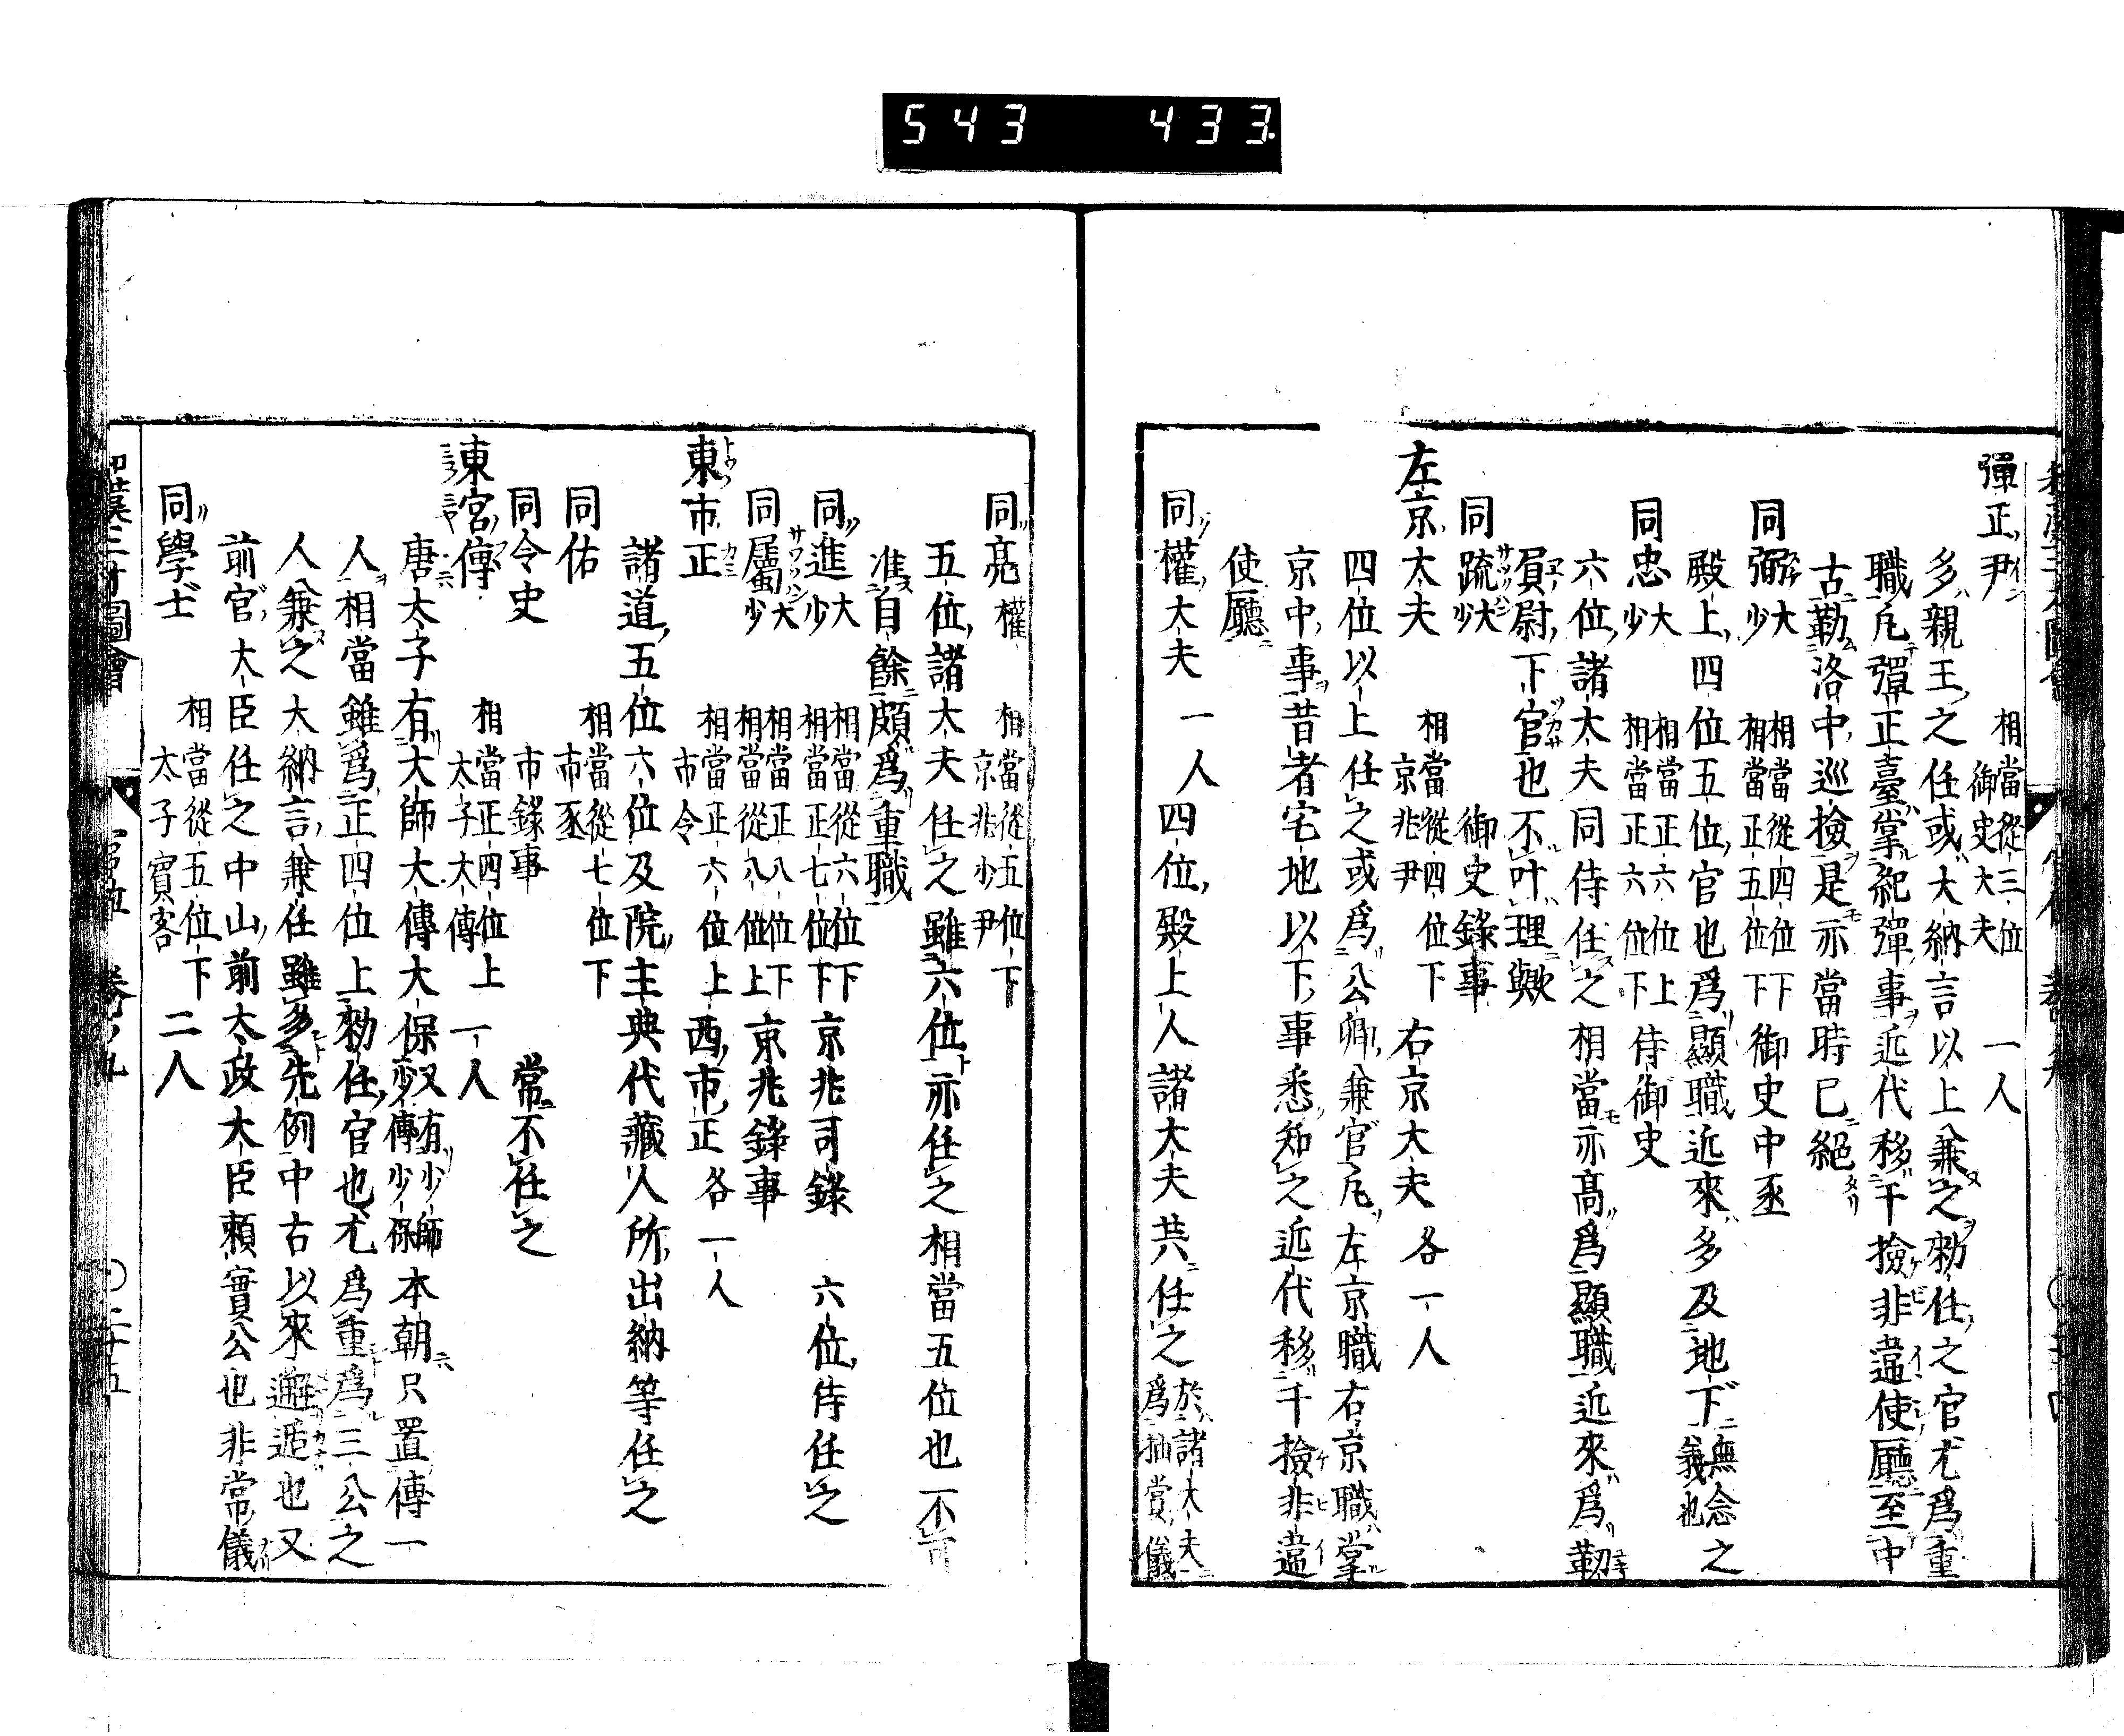 543 433
彈正尹 相當從三位 御史大夫 一人
多親王之任或大納言以上兼之勅任之官尤爲重
職凡彈正臺掌紀彈事近代移于撿非違使廳至中
古勒洛中巡撿是亦當時已絕
同弼 大少 相當從四位下 相當正五位下 御史中丞
殿上四位五位官也爲顯職近來多及地下 無念之義也
同忠 大少 相當正六位上 相當正六位下 侍御史
六位諸大夫同侍任之相當亦高爲顯職近來爲靱
負尉下官也不叶理歟
同疏 大少 御史錄事
左京大夫 相當從四位下 京兆尹 右京大夫 各一人
四位以上任之或爲公卿兼官凡左京職右京職掌
京中事昔者宅地以下事悉知之近代移于撿非違
使廳
同權大夫 一人 四位殿上人諸大夫共任之 於諸大夫爲抽賞儀
同亮 權 相當從五位下 京兆少尹
五位諸大夫任之雖六位亦任之相當五位也不可
准自餘頗爲重職
同進 大少 相當從六位下 相當正七位下 京兆司錄 六位侍任之
同屬 大少 相當正八位下 相當從八位上 京兆錄事
東市正 相當正六位上 市令 西市正 各一人
諸道五位六位及院主典代藏人所出納等任之
同佑 相當從七位下 市丞
同令史 市錄事 常不任之
東宮傅 相當正四位上 太子大傅 一人
唐太子有大師大傅大保 又有少師少傅少保 本朝只置傅一
人相當雖爲正四位上勅任官也尤爲重爲三公之
人兼之大納言兼任雖多先例中古以來邂逅也又
前官大臣任之中山前太政大臣賴實公也非常儀
同學士 相當從五位下 太子賓客 二人
和漢三才圖會 官位 卷ノ九 〇二十五